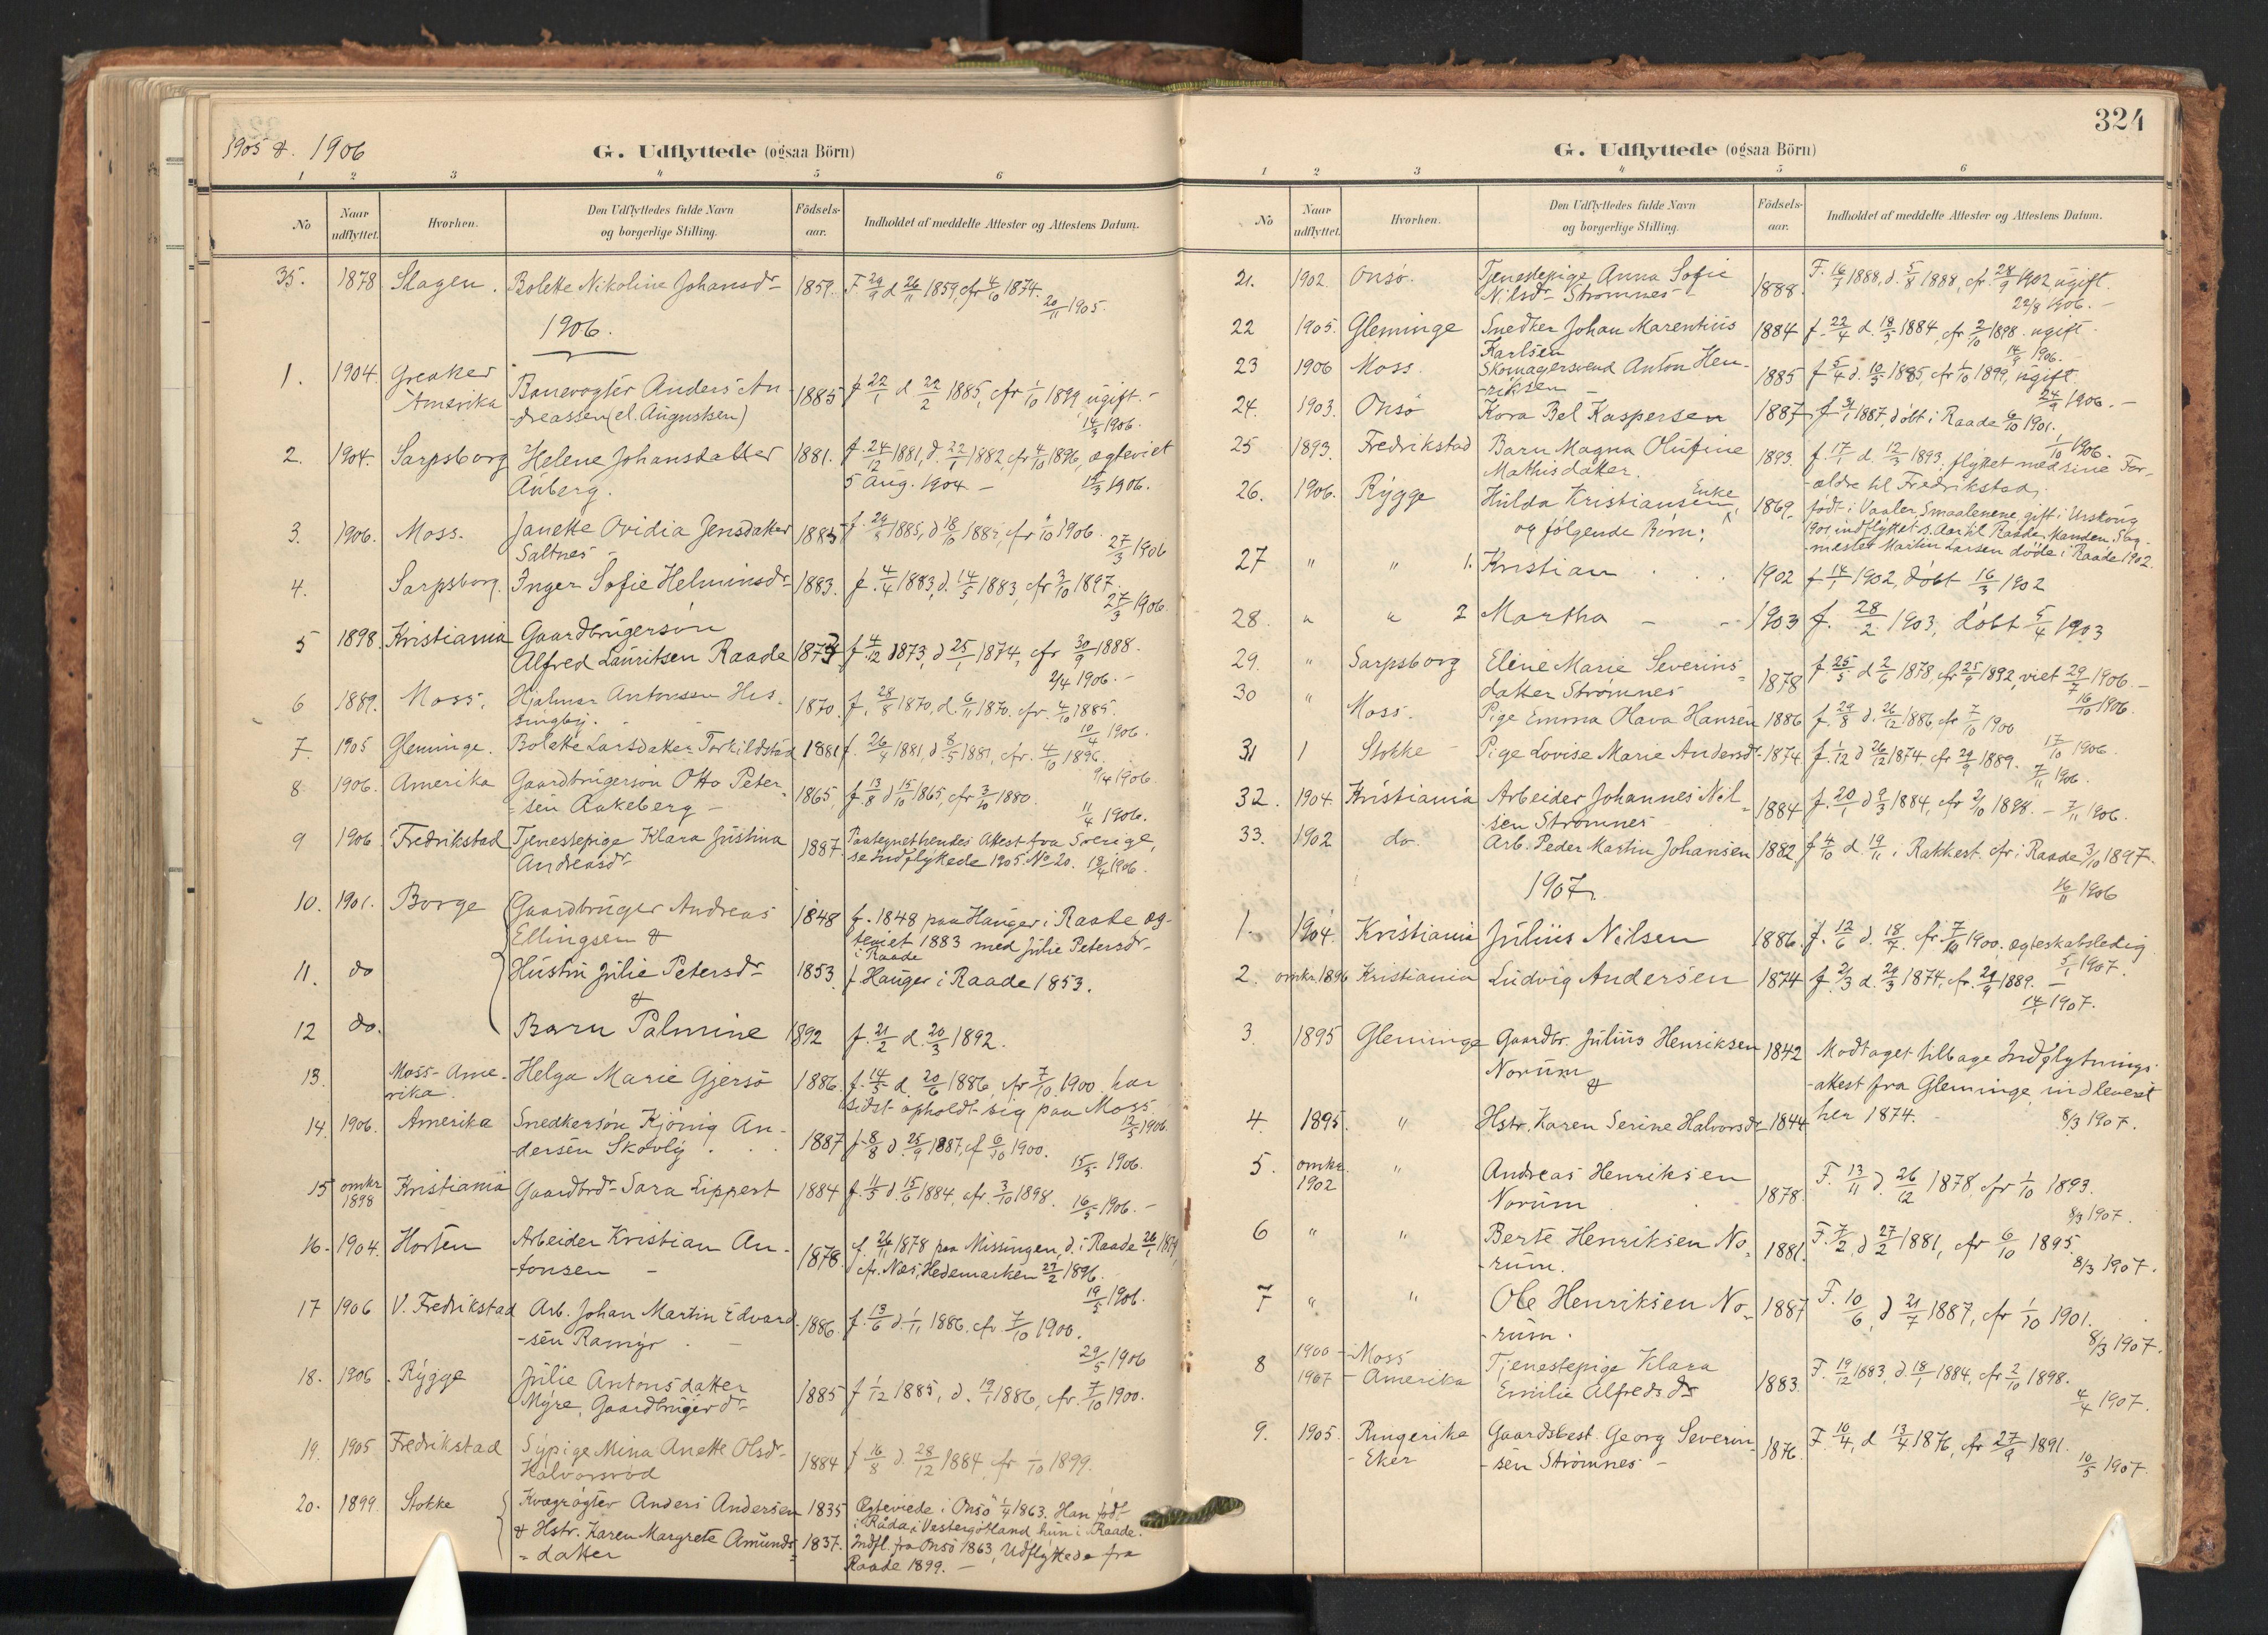 1905 & 1906
G. Udflyttede (ogsaa Börn)
1 2 3 4 5 6
No
Naar udflyttet.
Hvorhen.
Den Udflyttedes fulde Navn og borgerlige Stilling.
Födsels-aar.
Indholdet af meddelte Attester og Attestens Datum.
35. 1878 Slagen. Bolette Nikoline Johansdr 1859. F. 29/9 d 26/11 1859, cfr 4/10 1874.
20/11 1905.
1906.
1. 1904. Greaker Amerika Banevogter Anders An- 1885 f 22/1 d 22/2 1885, cfr 1/10 1899 ugift. -
-dreassen (el. Augustsen) 14/3 1906.
2. 1904. Sarpsborg Helene Johansdatter 1881. f. 24/12 1881, d. 22/1 1882, cfr 4/10 1896, ægteviet
Auberg. 5 Aug. 1904 - 15/3 1906.
3. 1906. Moss. Janette Ovidia Jensdatter 1885 1885, d 18/10 1885, cfr 1906.
Saltnes - 27/3 1906
4. Sarpsborg. Inger Sofie Helminsdr 1883. f. 4/4 1883, d. 14/5 1883, cfr 3/10 1897.
27/3 1906.
5 1898. Kristiania Gaardbrugersön
Alfred Lauritsen Raade 1873 f. 4/12 1873, d 25/1 1874, cfr 30/9 1888.
2/4 1906. -
6 1889. Moss. Hjalmar Antonsen His- 1870. f. 28/8 1870, d. 6/11 1870. cfr. 4/10 1885.
singby. 10/4 1906.
7. 1905 Glemminge. Bolette Larsdatter Torkildstad 1881 f. 26/4 1881, d 8/5 1881, cfr. 4/10 1896.
9/4 1906.
8 1906. Amerika Gaardbrugersön Otto Peter- 1865, f. 13/8 d 15/10 1865, cfr 3/10 1880.
-sen Aakeberg - 11/4 1906.
9 1906 Fredrikstad Tjenestepige Klara Justina 1887. Paategnet hendes Attest fra Sverige,
Andreasdr se Indflyttede 1905 No 20. 19/4 1906.
10. 1901. Borge Gaardbruger Andreas 1848 f. 1848 paa Hauger i Raade, æg-
Ellingsen & teviet 1883 med Julie Petersdr
i Raade
11. do Hustru Julie Petersdr 1853. f. Hauger i Raade 1853.
&
12 do. Barn Palmine 1892 f. 21/2 d. 20/3 1892.
13. Moss- Ame- Helga Marie Gjersö 1886. f. 14/5 d. 20/6 1886, cfr 7/10 1900. har
rika. sidst opholdt sig paa Moss
12/5 1906.
14. 1906. Amerika Snedkersön Kjönig An- 1887 f 8/8 d. 25/9 1887, cf 6/10 1900.
dersen Skovly. 15/5 1906.
15 omkr 1898 Kristiania Gaardbrdr Sara Lippert 1884 f. 11/5 d. 15/6 1884, cfr. 3/10 1898. 16/5 1906. -
16. 1904. Horten Arbeider Kristian An- 1878. f. 26/11 1878 paa Missingen, d. i Raade 26/1 1879,
-tonsen - cfr. Næs, Hedemarken 27/2 1896.
19/5 1906.
17 1906 V. Fredrikstad Arb. Johan Martin Edvard- 1886. f. 13/6 d. 1/11 1886, cfr 7/10 1900.
-sen Ramyr - 29/5 1906
18. 1906 Rygge Julie Antonsdatter 1885 f 1/12 1885, d. 19/1 1886, cfr. 7/10 1900.
Myre, Gaardbrugerdr
19. 1905 Fredrikstad Sypige Mina Anette Olsdr 1884 f 16/8 d. 28/12 1884 cfr 1/10 1899.
Halvorsröd
20. 1899. Stokke Kvægrögter Anders Andersen 1835 Ægteviede i Onsö 1/4 1863. Han född
i Råda i Vestergötland, hun i Raade.
& Hstr. Karen Margrete Amunds- 1837. Indfl. fra Onsö 1863, Udflyttede fra
-datter Raade 1899. -
324
G. Udflyttede (ogsaa Börn)
1 2 3 4 5 6
No
Naar udflyttet.
Hvorhen.
Den Udflyttedes fulde Navn og borgerlige Stilling.
Födsels-aar.
Indholdet af meddelte Attester og Attestens Datum.
21. 1902. Onsö. Tjenestepige Anna Sofie 1888. F. 16/7 1888, d. 5/8 1888, cfr. 28/9 1902, ugift.
Nilsdr Strømnes - 22/8 1906. -
22 1905. Glemminge Snedker Johan Marentius 1884 f. 22/4 d. 18/5 1884, cfr 2/10 1898. ugift.
Karlsen 14/9 1906. -
23 1906 Moss. Skomagersvend Anton Hen- 1885 f 5/4 d. 10/5 1885, cfr 1/10 1899, ugift.
-riksen - 24/9 1906. -
24. 1903. Onsö Kora Bel Kaspersen 1887 1887, döbt i Raade 6/10 1901.
1/10 1906.
25 1893. Fredrikstad Barn Magna Olufine 1893. f. 17/1 d. 12/3 1893, flyttet med sine For-
Mathisdatter. -ældre til Fredrikstad.
26. 1906. Rygge Hulda Kristiansen, Enke 1869. född i Vaaler Smaalenene, gift i Urskoug
og følgende Börn: 1901, indflyttet s. Aar til Raade, Manden, Slag-
-mester Martin Larsen döde i Raade 1902.
27 " " 1. Kristian 1902 f 14/1 1902, döbt 16/3 1902
28. " " 2 Martha - - 1903 f. 28/2 1903, döbt 5/4 1903
29. " Sarpsborg Eline Marie Severins- 1878 f. 25/5 d 2/6 1878, cfr 25/9 1892, viet 29/7 1906. -
datter Strømnes 16/10 1906.
30 " Moss. Pige Emma Olava Hansen 1886 f. 29/8 d. 26/12 1886, cfr 7/10 1900
17/10 1906.
31 1 Stokke - Pige Lovise Marie Andersdr 1874 f. 1/12 d 26/12 1874, cfr 29/9 1889.
7/11 1906.
32. 1904. Kristiania Arbeider Johannes Nil- 1884 f. 20/1 d 9/3 1884, cfr 2/10 1898. - 7/11 1906.
-sen Strömnes -
33. 1902 do. Arb. Peder Martin Johansen 1882, f 4/10 d. 19/11 i Rakkest. cfr i Raade 3/10 1897.
16/11 1906
1907.
1. 1904. Kristiania Julius Nilsen 1886. f. 12/6 d. 18/7 cfr 7/10 1900. ægteskabsledig
5/1 1907.
2. omkr. 1896 Kristiania Ludvig Andersen 1874 f. 2/3 d. 29/3 1874, cfr. 29/9 1889. -
14/1 1907.
3. 1895 Glemminge Gaardbr. Julius Henriksen 1842 Modtaget tilbage Indflytnings-
Norum -attest fra Glemminge, indleveret
&
4. 1895. " Hstr. Karen Serine Halvorsdr 1844 her 1874. 8/3 1907.
5. omkr. 1902 " Andreas Henriksen 1878. F. 13/11 d. 26/12 1878, cfr 1/10 1893.
Norum 8/3 1907.
6 " " Berte Henriksen No- 1881. F. 7/2, d 27/2 1881, cfr 6/10 1895.
-rum. 8/3 1907.
7 " " Ole Henriksen No- 1887 F. 10/6, d 21/7 1887, cfr 1/10 1901.
-rum. 8/3 1907.
8 1900 - Moss Tjenestepige Klara 1883. F. 19/12 1883, d. 18/1 1884, cfr 2/10 1898.
1907 - Amerika Emilie Alfredsdr 4/4 1907.
9. 1905. Ringerike Gaardsbest. Georg Severin- 1876. F. 10/4, d 13/4 1876, cfr 27/9 1891.
- Eker -sen Strömnes - 10/5 1907.